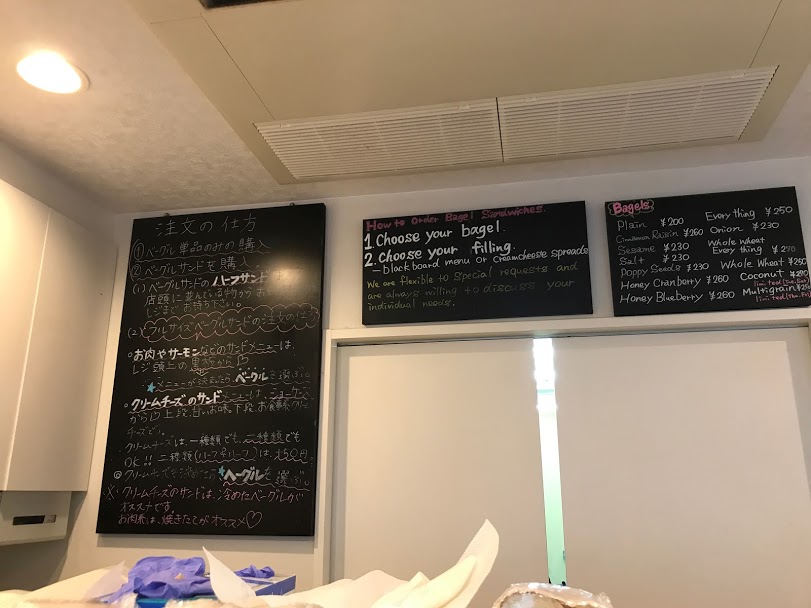 注文の仕方
① ベーグル単品のみの購入
② ベーグルサンドを購入
(1) ベーグルサンドのハーフサンド
店頭に並んでいる
レジまでお持ち下さい
(2) フルサイズベーグルサンドの注文の仕方
○お肉やサーモンなどのサンドメニューは、
レジ頭上の黒板から♡
★メニューが決まったら ベーグルを選ぶ
○クリームチーズのサンドメニューは、ショーケース
から♡上段、甘いお味。下段、お食事系クリーム
チーズと。
クリームチーズは、一種類でも、二種類でも
OK!! 二種類(ハーフ&ハーフ)は、+50円。
★ベーグルを選ぶ
※クリームチーズのサンドは、冷めたベーグルが
オススメです。
お肉系は、焼きたてがオススメ♡
How to Order Bagel Sandwiches.
1. Choose your bagel.
2. Choose your filling.
- black board menu or Creamcheese spreads
We are flexible to special requests and
are always willing to discuss your
individual needs.
Bagels
Plain ¥200
Cinnamon Raisin ¥260
Sesame ¥230
Salt ¥230
Poppy Seeds ¥230
Honey Cranberry ¥260
Honey Blueberry ¥260
Every thing ¥250
Onion ¥230
Whole Wheat
Every thing ¥270
Whole Wheat ¥250
Coconut
limited
Multigrain
limited